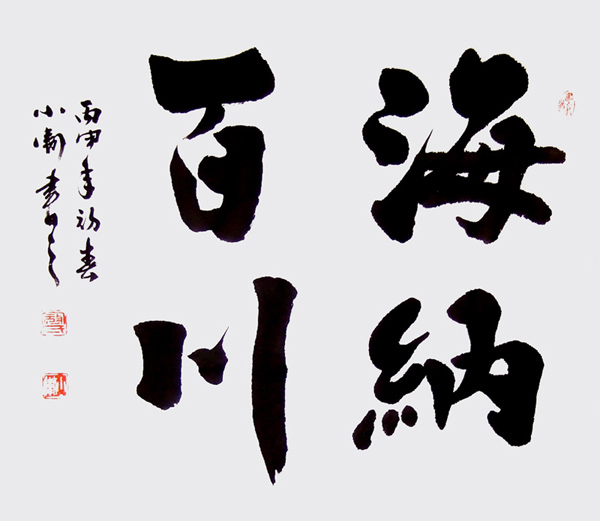 海納
百川
丙申年初春
小衛書之